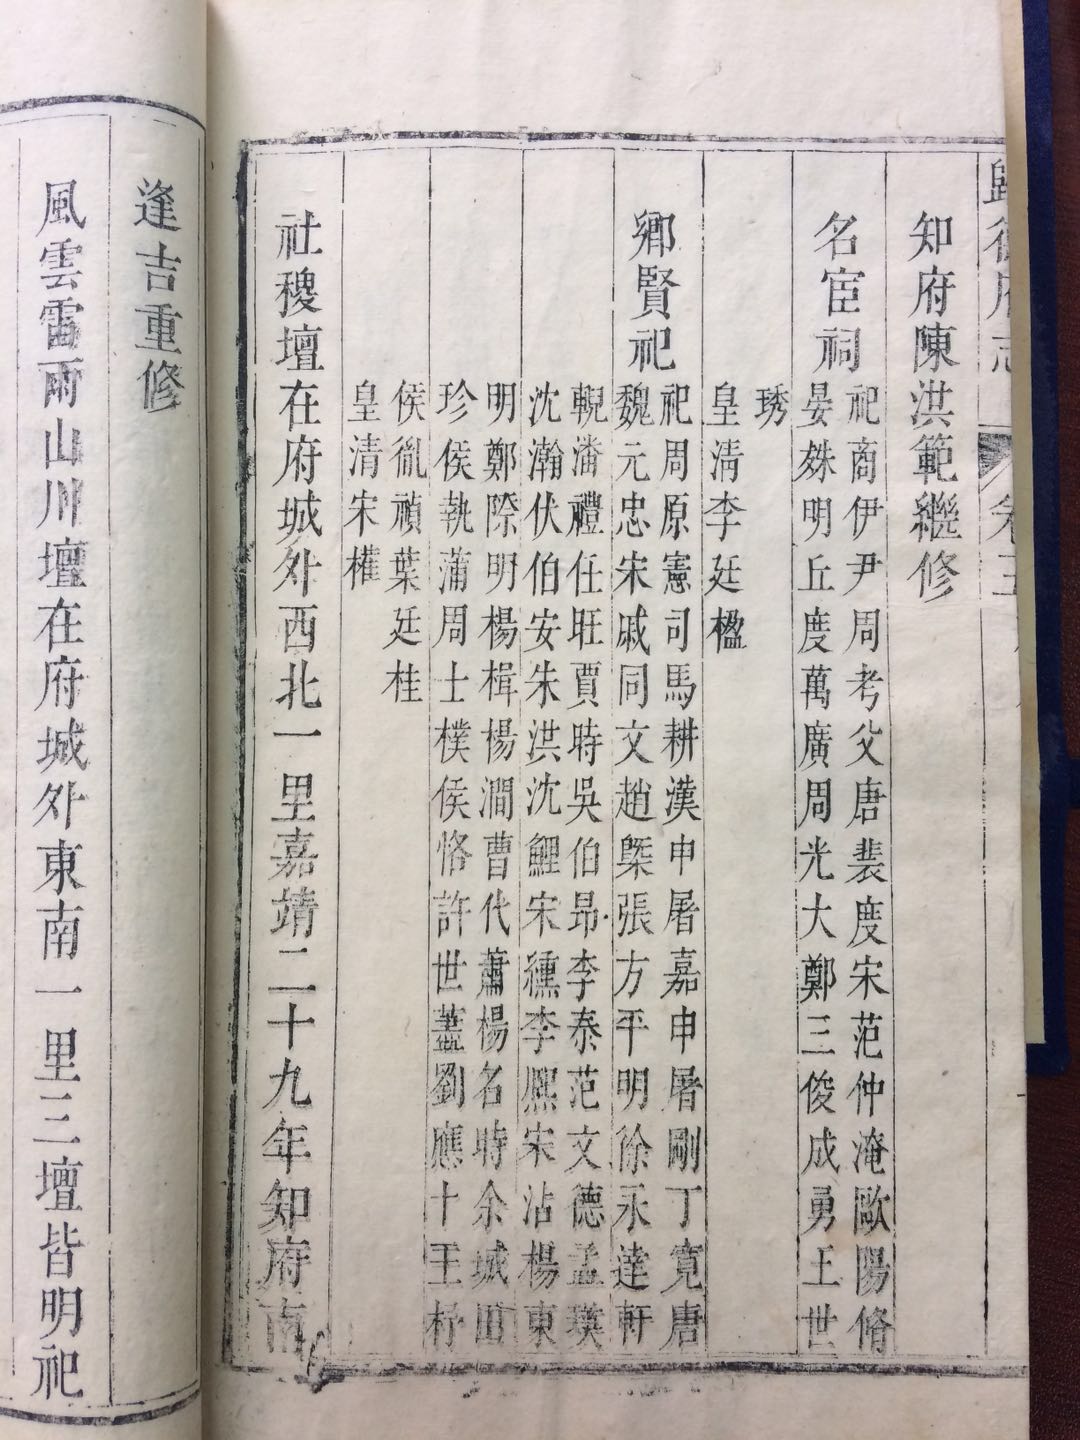 歸德府志
卷三
知府陳洪範繼修
名宦祠
祀商伊尹周考父唐裴度宋范仲淹歐陽脩
晏殊明丘度萬廣周光大鄭三俊成勇王世
琇
皇清李廷楹
鄉賢祀
祀周原憲司馬耕漢申屠嘉申屠剛丁寬唐
魏元忠宋戚同文趙槩張方平明徐永達軒
輗潘禮任旺賈時吳伯昂李泰范文德孟璞
沈瀚伏伯安朱洪沈鯉宋纁李熙宋沾楊東
明鄭際明楊楫楊澗曹代蕭楊名時余城田
珍侯執蒲周士樸侯恪許世藎劉應十王杼
侯胤禎葉廷桂
皇清宋權
社稷壇在府城外西北一里嘉靖二十九年知府南
逢吉重修
風雲雷雨山川壇在府城外東南一里三壇皆明祀